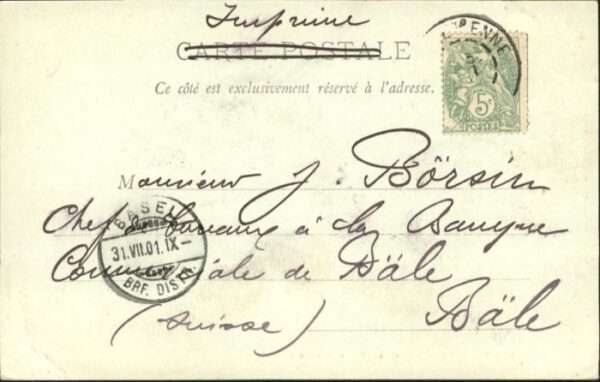 Imprimé
CARTE POSTALE
Ce côté est exclusivement réservé à l'adresse.
ENNE
5c
POSTES
Monsieur J. Börsin
Chef à la Banque
Commerciale de Bâle
(Suisse) Bâle
BASEL
31.VII.01.IX-
BRF. DIST.